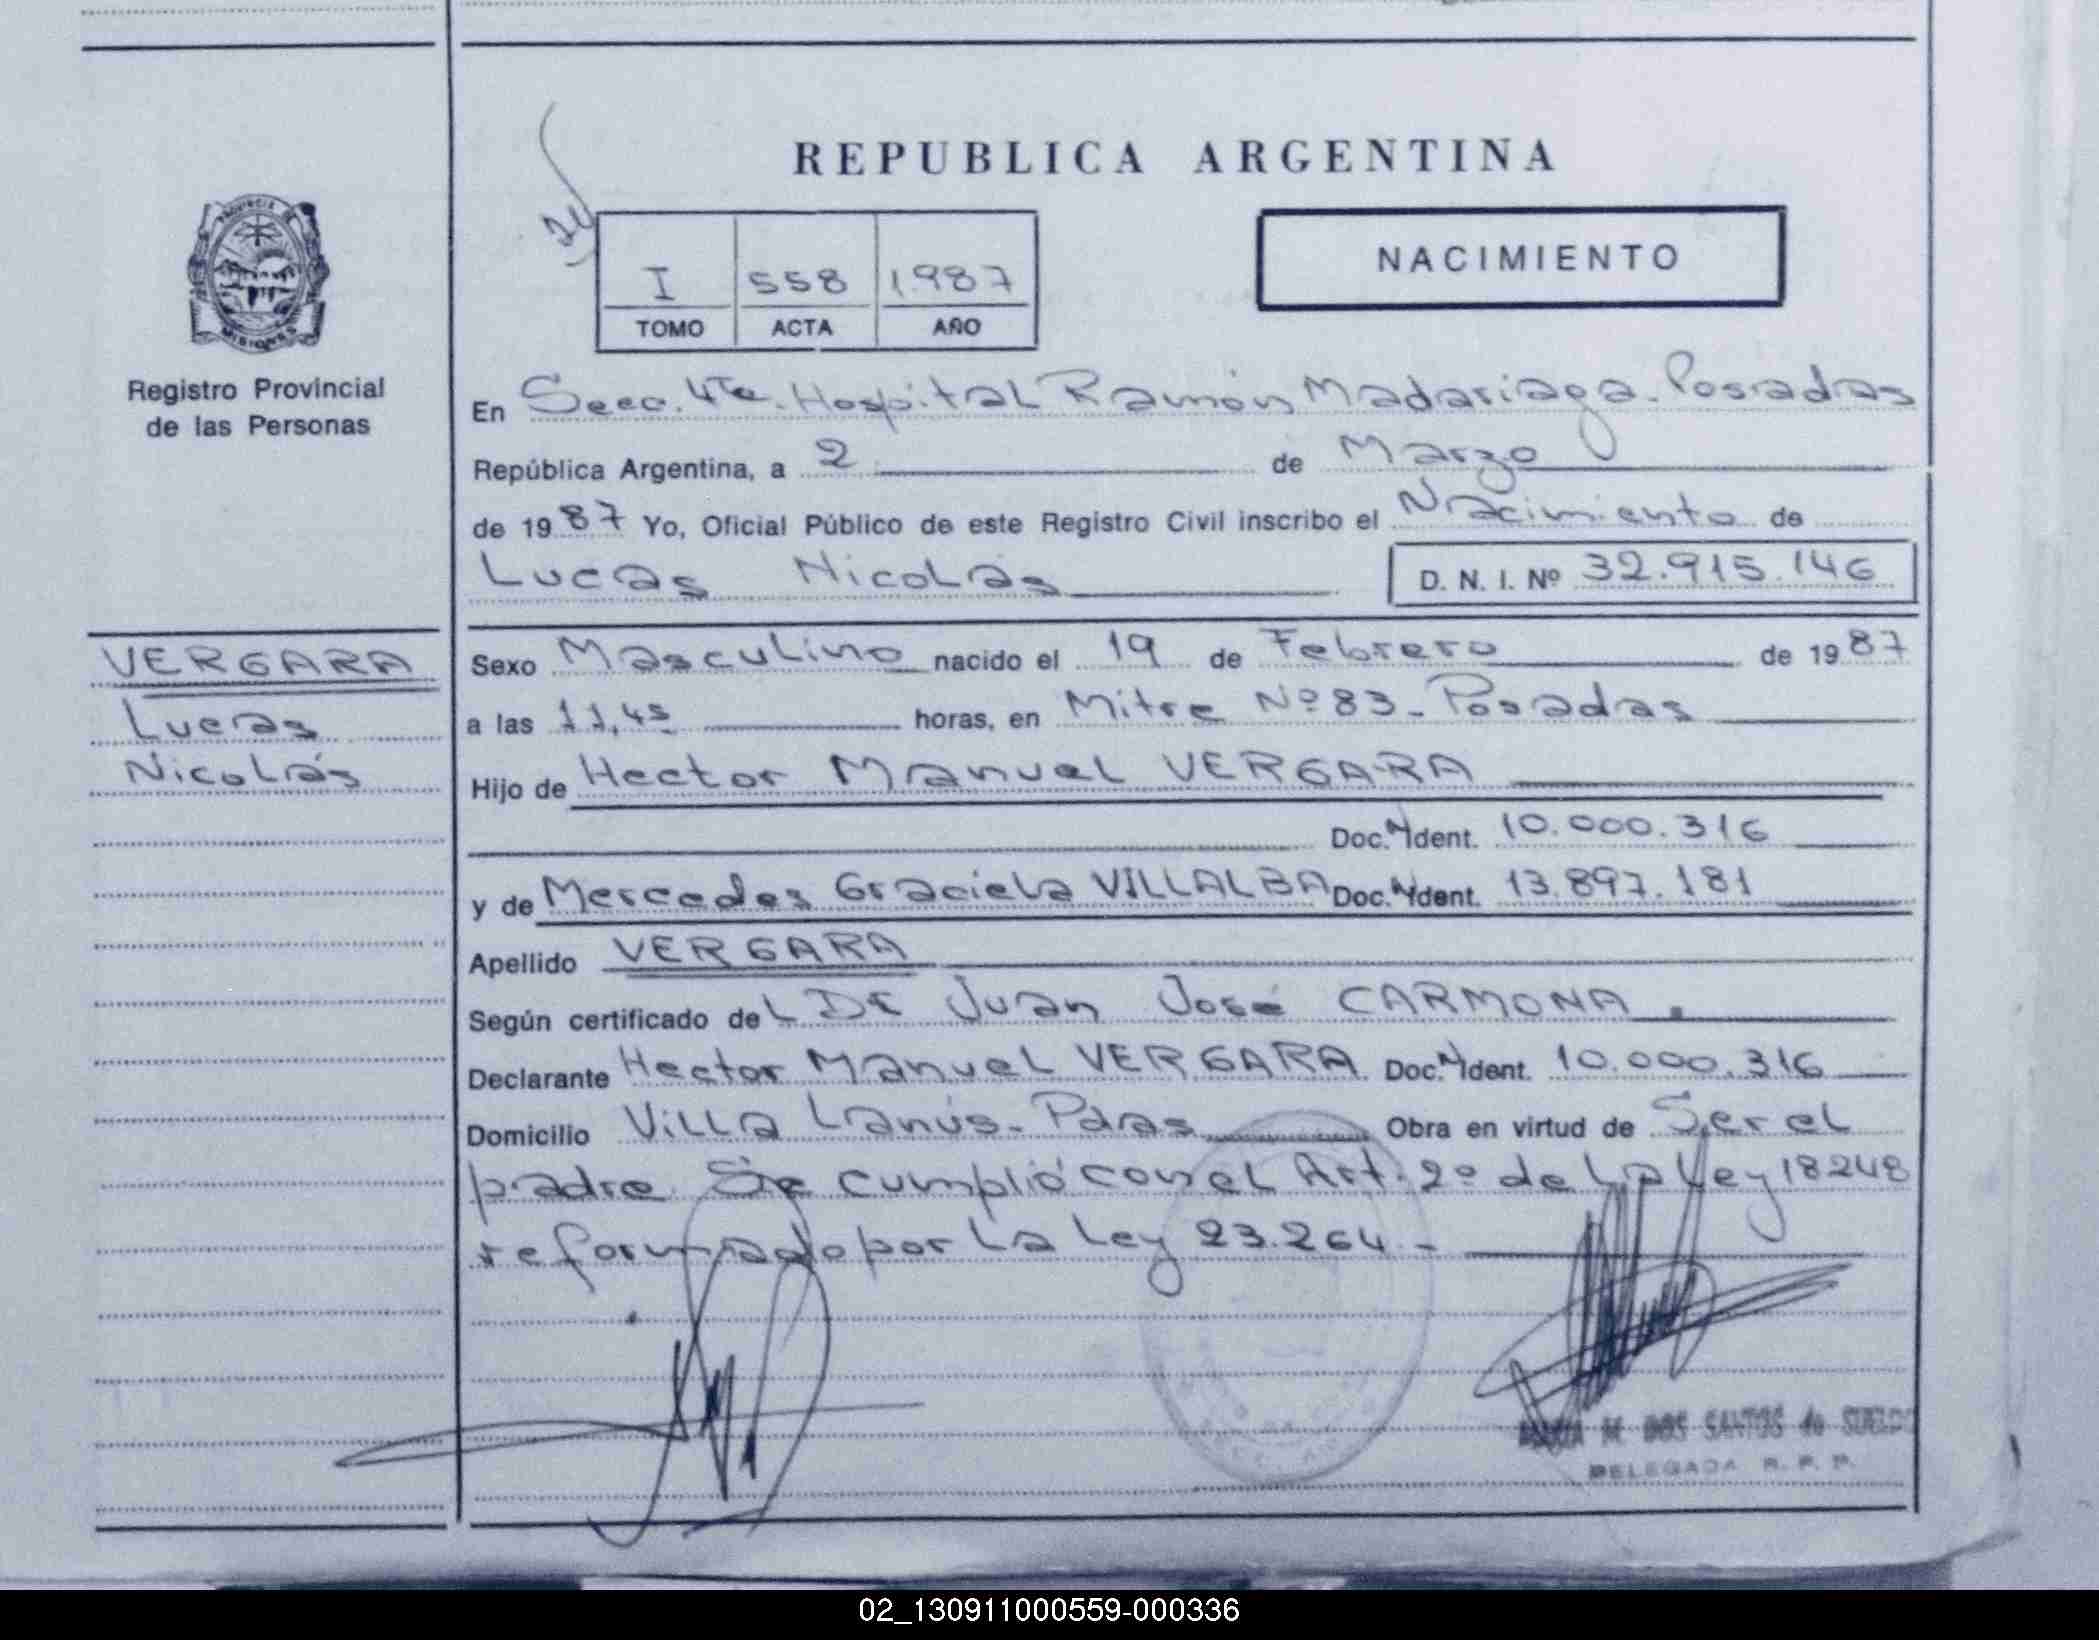 REPUBLICA ARGENTINA
PROVINCIA DE
MISIONES
Registro Provincial
de las Personas
I 558 1987
TOMO ACTA AÑO
NACIMIENTO
En Secc. 4ta. Hospital Ramón Madariaga. Posadas
República Argentina, a 2 de Marzo
de 1987 Yo, Oficial Público de este Registro Civil inscribo el Nacimiento de
Lucas Nicolás D. N. I. Nº 32.915.146
VERGARA
Lucas
Nicolás
Sexo Masculino nacido el 19 de Febrero de 1987
a las 11,45 horas, en Mitre Nº 83 - Posadas
Hijo de Hector Manuel VERGARA
Doc. N Ident. 10.000.316
y de Mercedes Graciela VILLALBA Doc. N Ident. 13.897.181
Apellido VERGARA
Según certificado del DE Juan José CARMONA.
Declarante Hector Manuel VERGARA Doc. N Ident. 10.000.316
Domicilio Villa Lanús - Pdas Obra en virtud de Ser el
padre. Se cumplió con el Art. 2º de la Ley 18248
reformado por La Ley 23.264 -
M. DOS SANTOS de SUELDO
DELEGADA R. P. P.
02_130911000559-000336